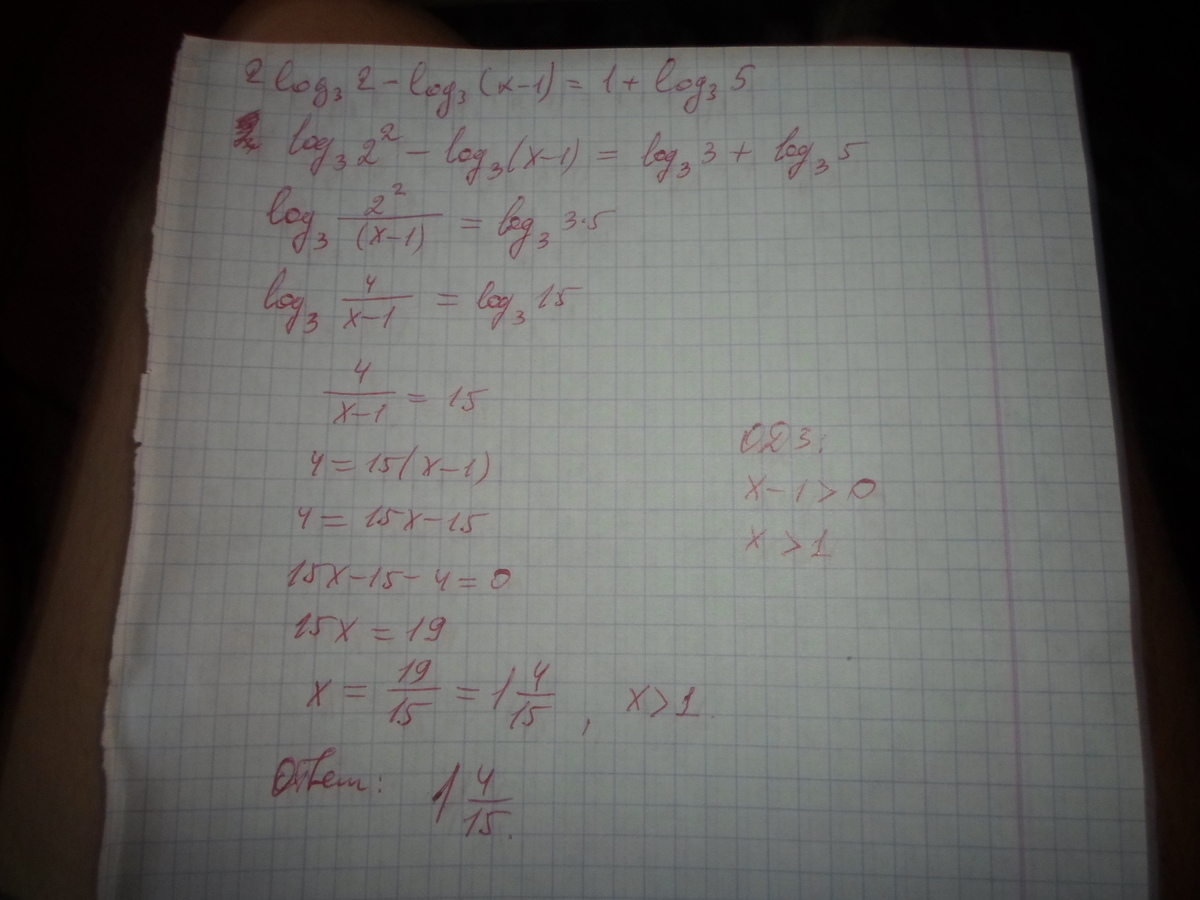 2 log₃ 2 − log₃ (x−1) = 1 + log₃ 5
log₃ 2² − log₃ (x−1) = log₃ 3 + log₃ 5
log₃ 2²/(x−1) = log₃ 3·5
log₃ 4/x−1 = log₃ 15
4/x−1 = 15
4 = 15(x−1)
4 = 15x−15
15x−15−4=0
15x = 19
x = 19/15 = 1 4/15 , x>1.
Ответ: 1 4/15.
ОДЗ:
x−1>0
x>1